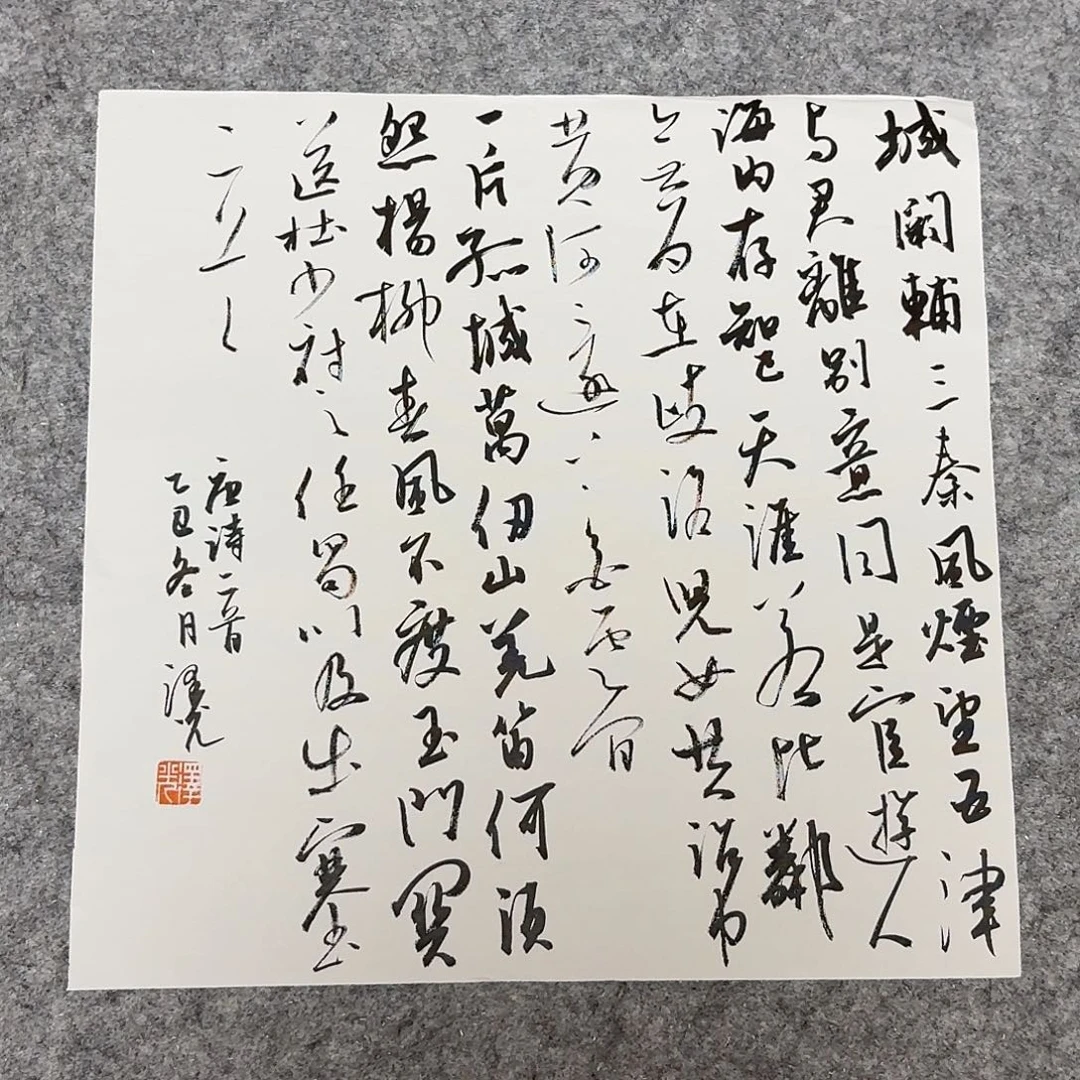 城闕輔三秦風煙望五津
与君離別意同是宦遊人
海内存知己天涯若比鄰
無為在歧路兒女共沾巾
黄河遠上白雲間
一片孤城萬仞山羌笛何須
怨楊柳春風不度玉門關
送杜少府之任蜀州及出塞
唐詩二首
乙巳冬月澤光
澤光